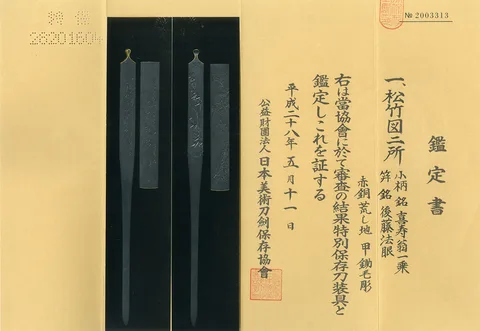 № 2003313
鑑定書
一、松竹図二所 小柄 銘 喜寿翁一乗
笄 銘 後藤法眼
赤銅 荒し地 甲鋤毛彫
右は當協會に於て審査の結果特別保存刀装具と
鑑定しこれを証する
平成二十八年五月十一日
公益財團法人 日本美術刀劍保存協會
28201604